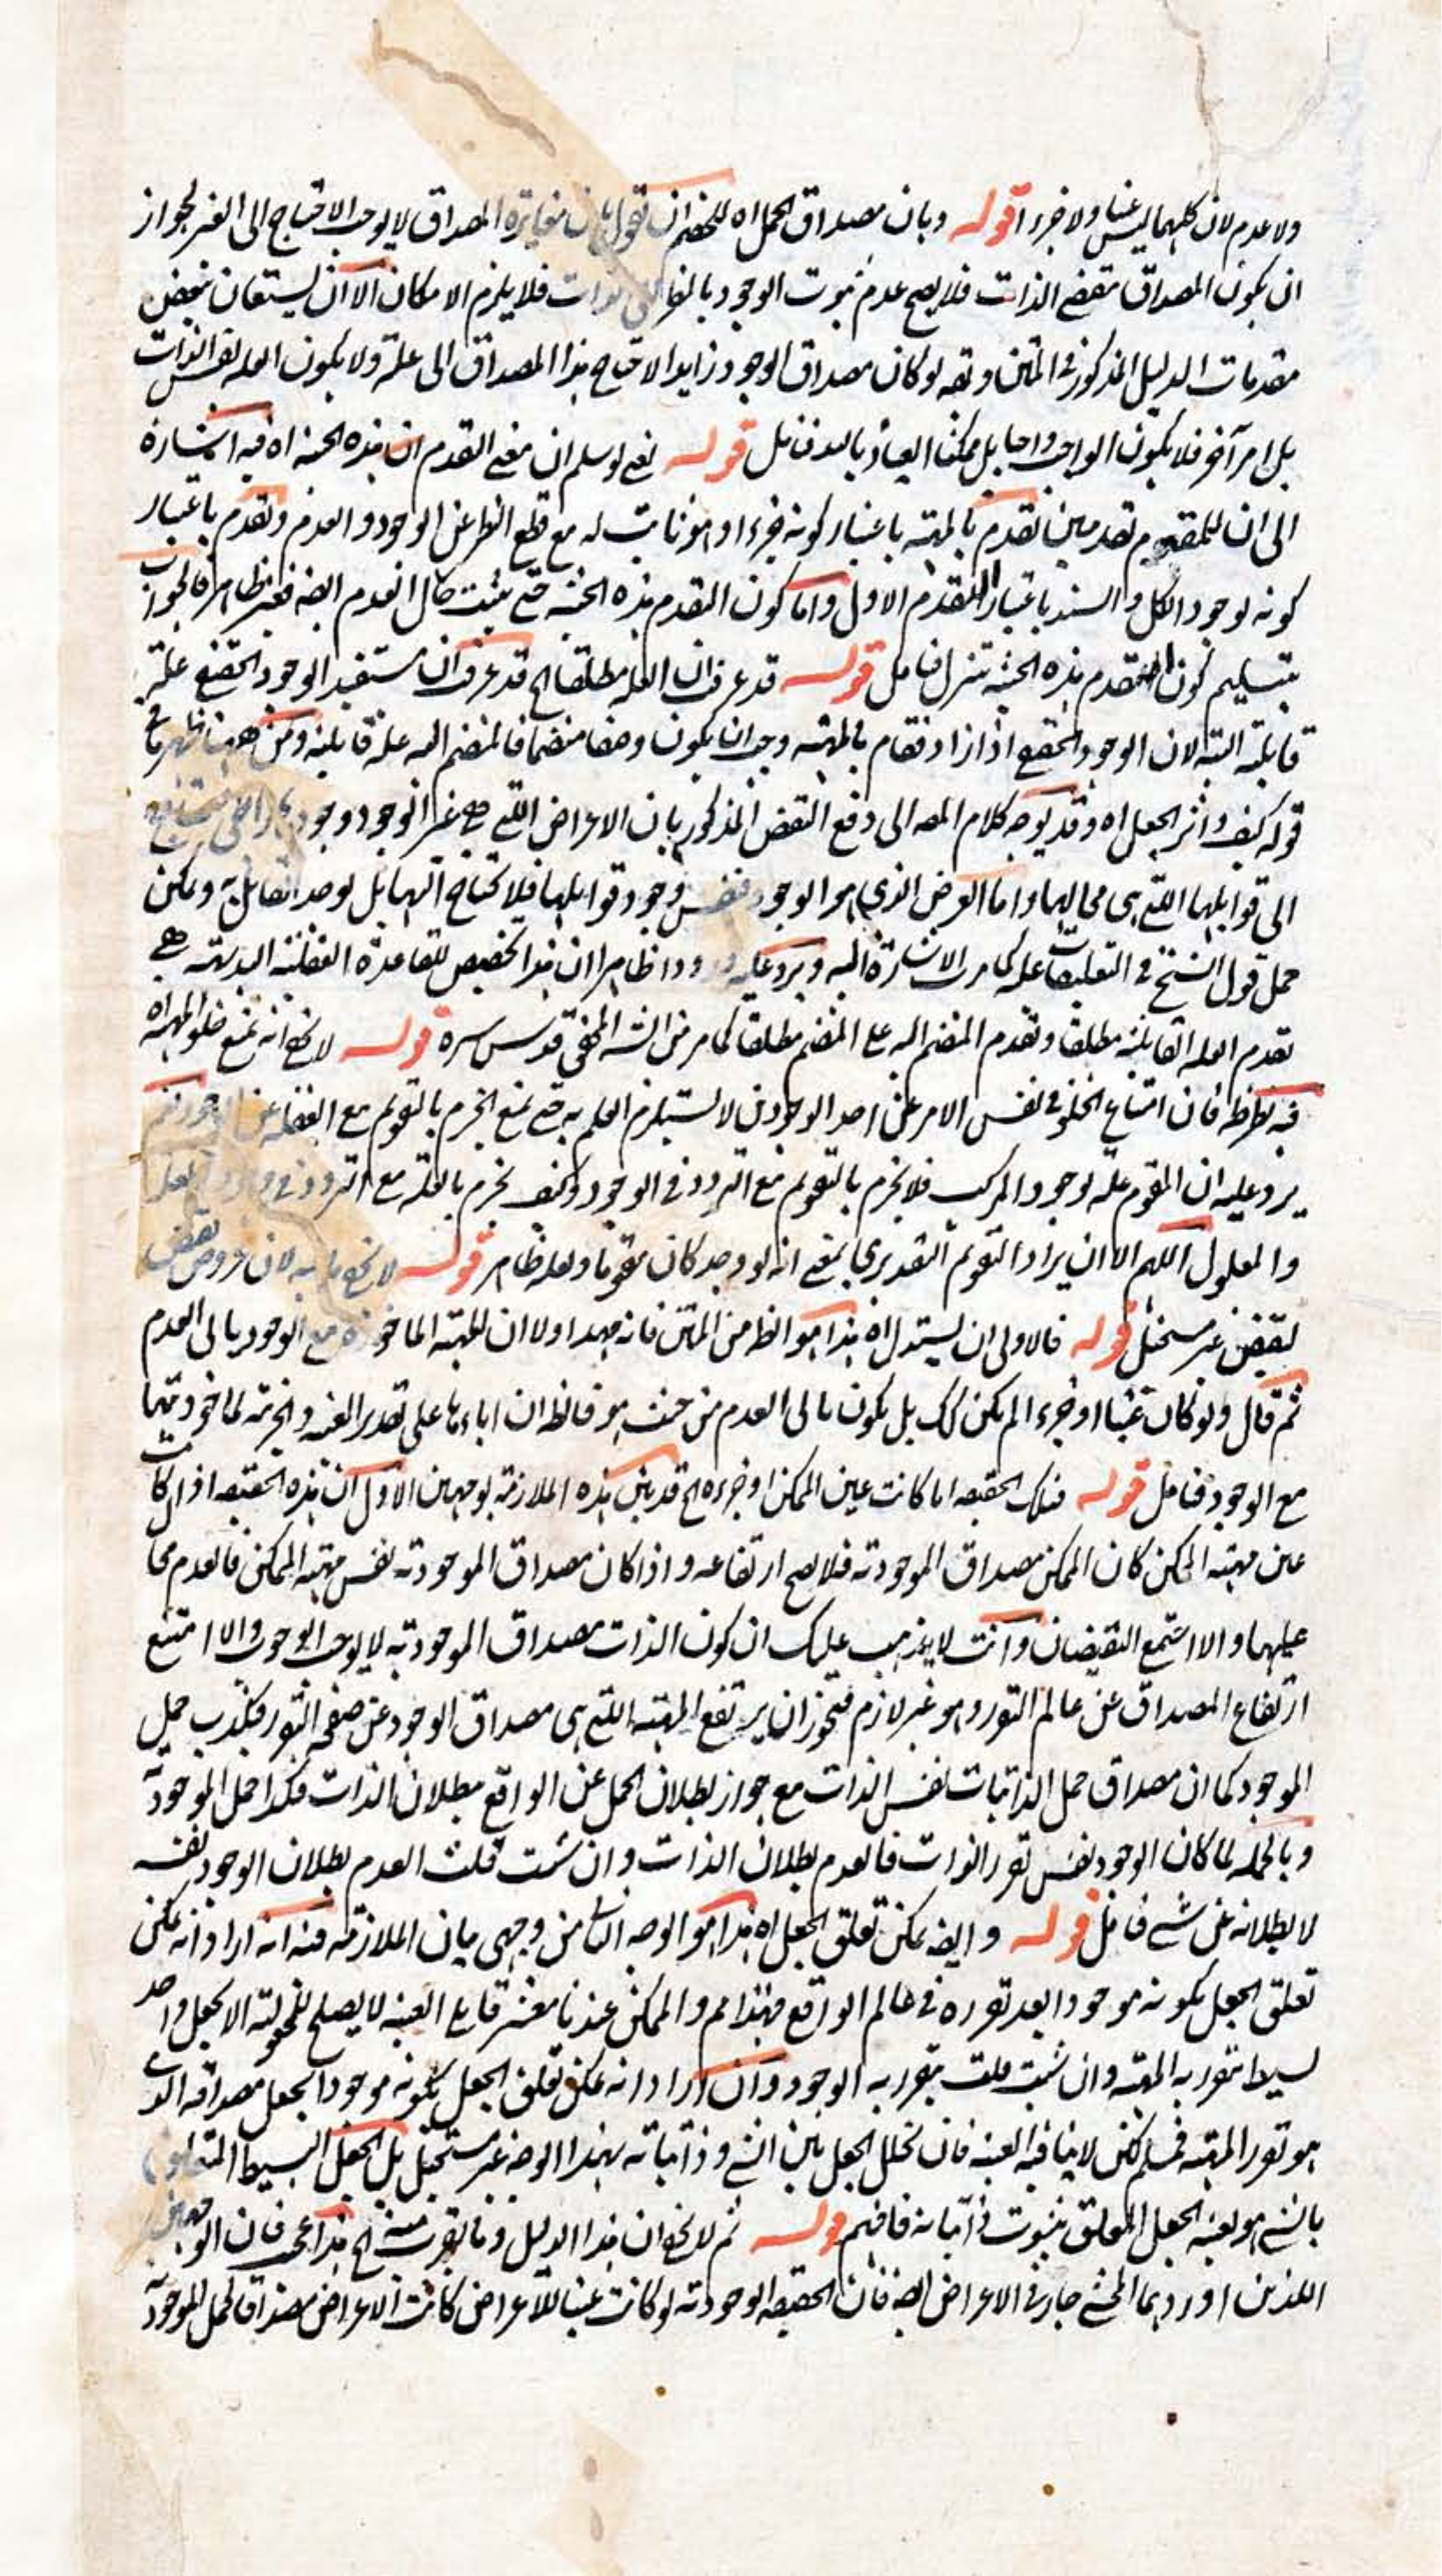 ولا عدم لان كليهما ليس عينا ولا جزءا قوله وبان مصداق الحمل اه للخصم ان يقول بان مغايرة المصداق لا يوجب الاحتياج الى الغير لجواز
ان يكون المصداق مقتضى الذات فلا يصح عدم ثبوت الوجود بالنظر الى الذات فلا يلزم الامكان الا ان يستعان ببعض
مقدمات الدليل المذكور في المتن وتقه لو كان مصداق الوجود زايدا لاحتاج هذا المصداق الى علة ولا يكون العلة نفس الذات
بل امر آخر فلا يكون الواجب واجبا بل ممكنا العياذ بالله فتامل قوله نعم لو سلم ان معنى التقدم ان هذه الحيثية اه فيه اشارة
الى ان للمقوم تقدمين تقدم بالمهية باعتبار كونه جزءا وهو ثابت له مع قطع النظر عن الوجود والعدم وتقدم باعتبار
كونه لوجود الكل والسند باعتبار التقدم الاول واما كون التقدم بهذه الحيثية حتى يثبت حال العدم ايضه فغير ظاهر فالجواب
بتسليم كون التقدم بهذه الحيثية تنزل فتامل قوله قد عرفت ان العلة مطلقا الخ قد عرفت ان مستفيد الوجود الحقيقي علة
قابلة البتة لان الوجود الحقيقي اذا زاد فقام بالمهية وجب ان يكون وصفا منضما فالمنضم اليه علة قابلية ومن ههنا ظهر ما في
قوله كيف واثر الجعل اه وقد يوجه كلام المصه الى دفع النقض المذكور بان الاعراض التي هي غير الوجود وجود
الى قوابلها التي هي محالها واما العرض الذي هو الوجود فنفس وجود قوابلها فلا تحتاج الى قابل يوجد القابل به ويمكن
حمل قول الشيخ في التعليقات عليه كما مرت الاشارة اليه ويرد عليه ورودا ظاهرا ان هذا تخصيص للقاعدة العقلية البديهية هي
تقدم العلة القابلية مطلقا وتقدم المنضم اليه على المنضم مطلقا كما مر من الشه المحقق قدس سره قوله لا يخفى انه يمنع خلو المهية اه
فيه نظر ظه فان امتناع الخلو في نفس الامر عن احد الوجودين لا يستلزم العلم به حتى يمنع الجزم بالتقوم مع الغفلة عن الوجود نعم
يرد عليه ان المقوم علة لوجود المركب فلا يجزم بالتقويم مع التردد في الوجود وكيف يجزم بالعلة مع التردد في وجود العلة
والمعلول اللهم الا ان يراد التقويم التقديري بمعنى انه لو وجد كان مقوما ولعله ظاهر قوله لا يخفى ما به لان عروض نقيض
لنقيض غير مستحيل قوله فالاولى ان يستدل اه هذا هو الظه من المتن فانه مهد اولا ان المهية الماخوذة مع الوجود يابى العدم
ثم قال ولو كان عينا او جزءا لم يكن كك بل يكون يابى العدم من حيث هو فالظه ان اباءها على تقدير العينية والجزئية لماخوذيتها
مع الوجود فتامل قوله فتلك الحقيقة اما كانت عين الممكن او جزءه الخ قد بين هذه الملازمة بوجهين الاول ان هذه الحقيقة اذا كانت
عين مهية الممكن كان الممكن مصداق الموجودية فلا يصح ارتفاعه واذا كان مصداق الموجودية نفس مهية الممكن فالعدم مح
عليها والا اجتمع النقيضان وانت لا يذهب عليك ان كون الذات مصداق الموجودية لا يوجب الوجوب والا امتنع
ارتفاع المصداق عن عالم التقرر وهو غير لازم فيجوز ان يرتفع المهية التي هي مصداق الوجود عن صفحة التقرر فيكذب حمل
الموجود كما ان مصداق حمل الذاتيات نفس الذات مع جواز بطلان الحمل عن الواقع ببطلان الذات فكذا حمل الموجودية
وبالجملة لما كان الوجود نفس تقرر الذات فالعدم بطلان الذات وان شئت قلت العدم بطلان الوجود نفسه
لا بطلانه عن شي فتامل قوله وايضه يمكن تعلق الجعل اه هذا هو الوجه الثاني من وجهي بيان الملازمة فيه انه اراد انه يمكن
تعلق الجعل بكونه موجودا بعد تقرره في عالم الواقع فهذا مم والممكن عندنا معشر قايلي العينية لا يصلح للمجعولية الا لجعل واحد
بسيط يتقرر به المهية وان شئت قلت يتقرر به الوجود وان اراد انه يمكن تعلق الجعل بكونه موجودا بجعل مصداقه الذي
هو تقرر المهية فمسلم لكن لا ينافيه العينية فان تخلل الجعل بين الشي وذاتياته بهذا الوجه غير مستحيل بل الجعل البسيط المتعلق
بالشي هو بعينه الجعل المتعلق بثبوت ذاتياته فافهم قوله ثم لا يخفى ان هذا الدليل وما يقرب منه الخ هذا عجب فان الوجهين
اللذين اوردهما المحشي جار في الاعراض ايضه فان الحقيقة الوجودية لو كانت عينا للاعراض كانت الاعراض مصداقا لحمل الموجودية